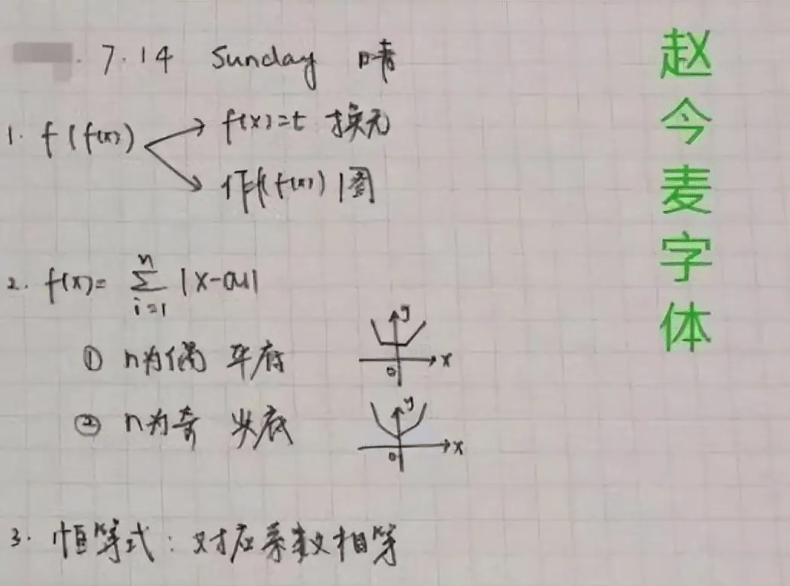 7.14 Sunday 晴
1. f(f(x)) f(x)=t 换元
作f(f(x))图
2. f(x)= n∑i=1 |x-ai|
① n为偶 平底
y
o x
② n为奇 尖底
y
o x
3. 恒等式：对应系数相等
赵今麦字体